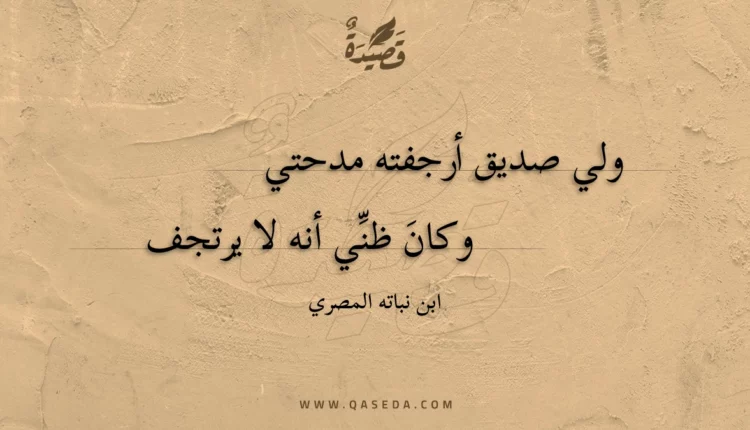 قَصِيْدَةٌ
ولي صديق أرجفته مدحتي
وكانَ ظنِّي أنه لا يرتجف
ابن نباته المصري
WWW.QASEDA.COM